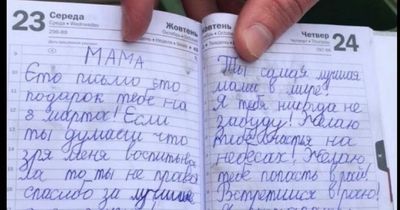 23 Середа
Среда • Wednesday
296-69
Жовтень
Октябрь • October
МАМА
Єто письмо єто
подарок тебе на
8 марта! Если
ты думаеш что
зря меня воспитыва
ла то ты не права
спасибо за лучшие
Жовтень
Октябрь • October
Четвер 24
Четверг • Thursday
Ты самая лучшая
мама в мире!
Я тебя нивогда не
забуду! Желаю
небесах! Желаю
тебе попасть в рай!
Встретимся в раю!